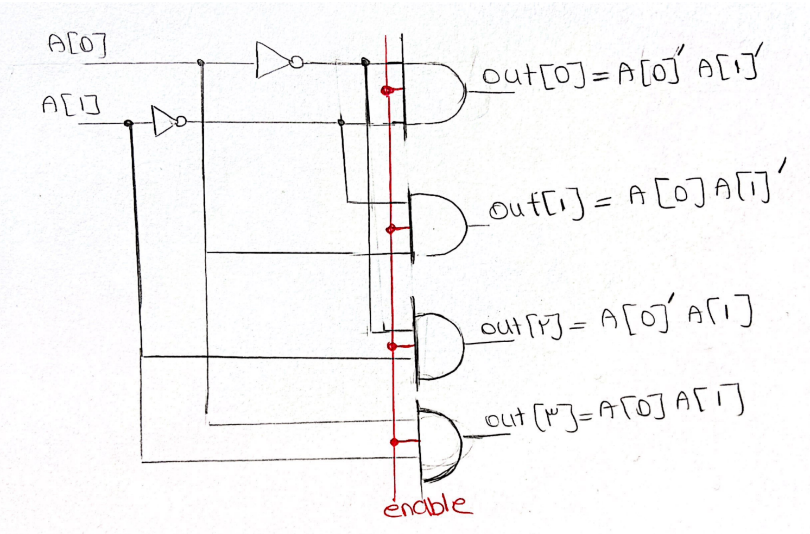 A[0]
out[0] = A[0]' A[1]'
A[1]
out[1] = A[0] A[1]'
out[۲] = A[0]' A[1]
out[۳] = A[0] A[1]
enable